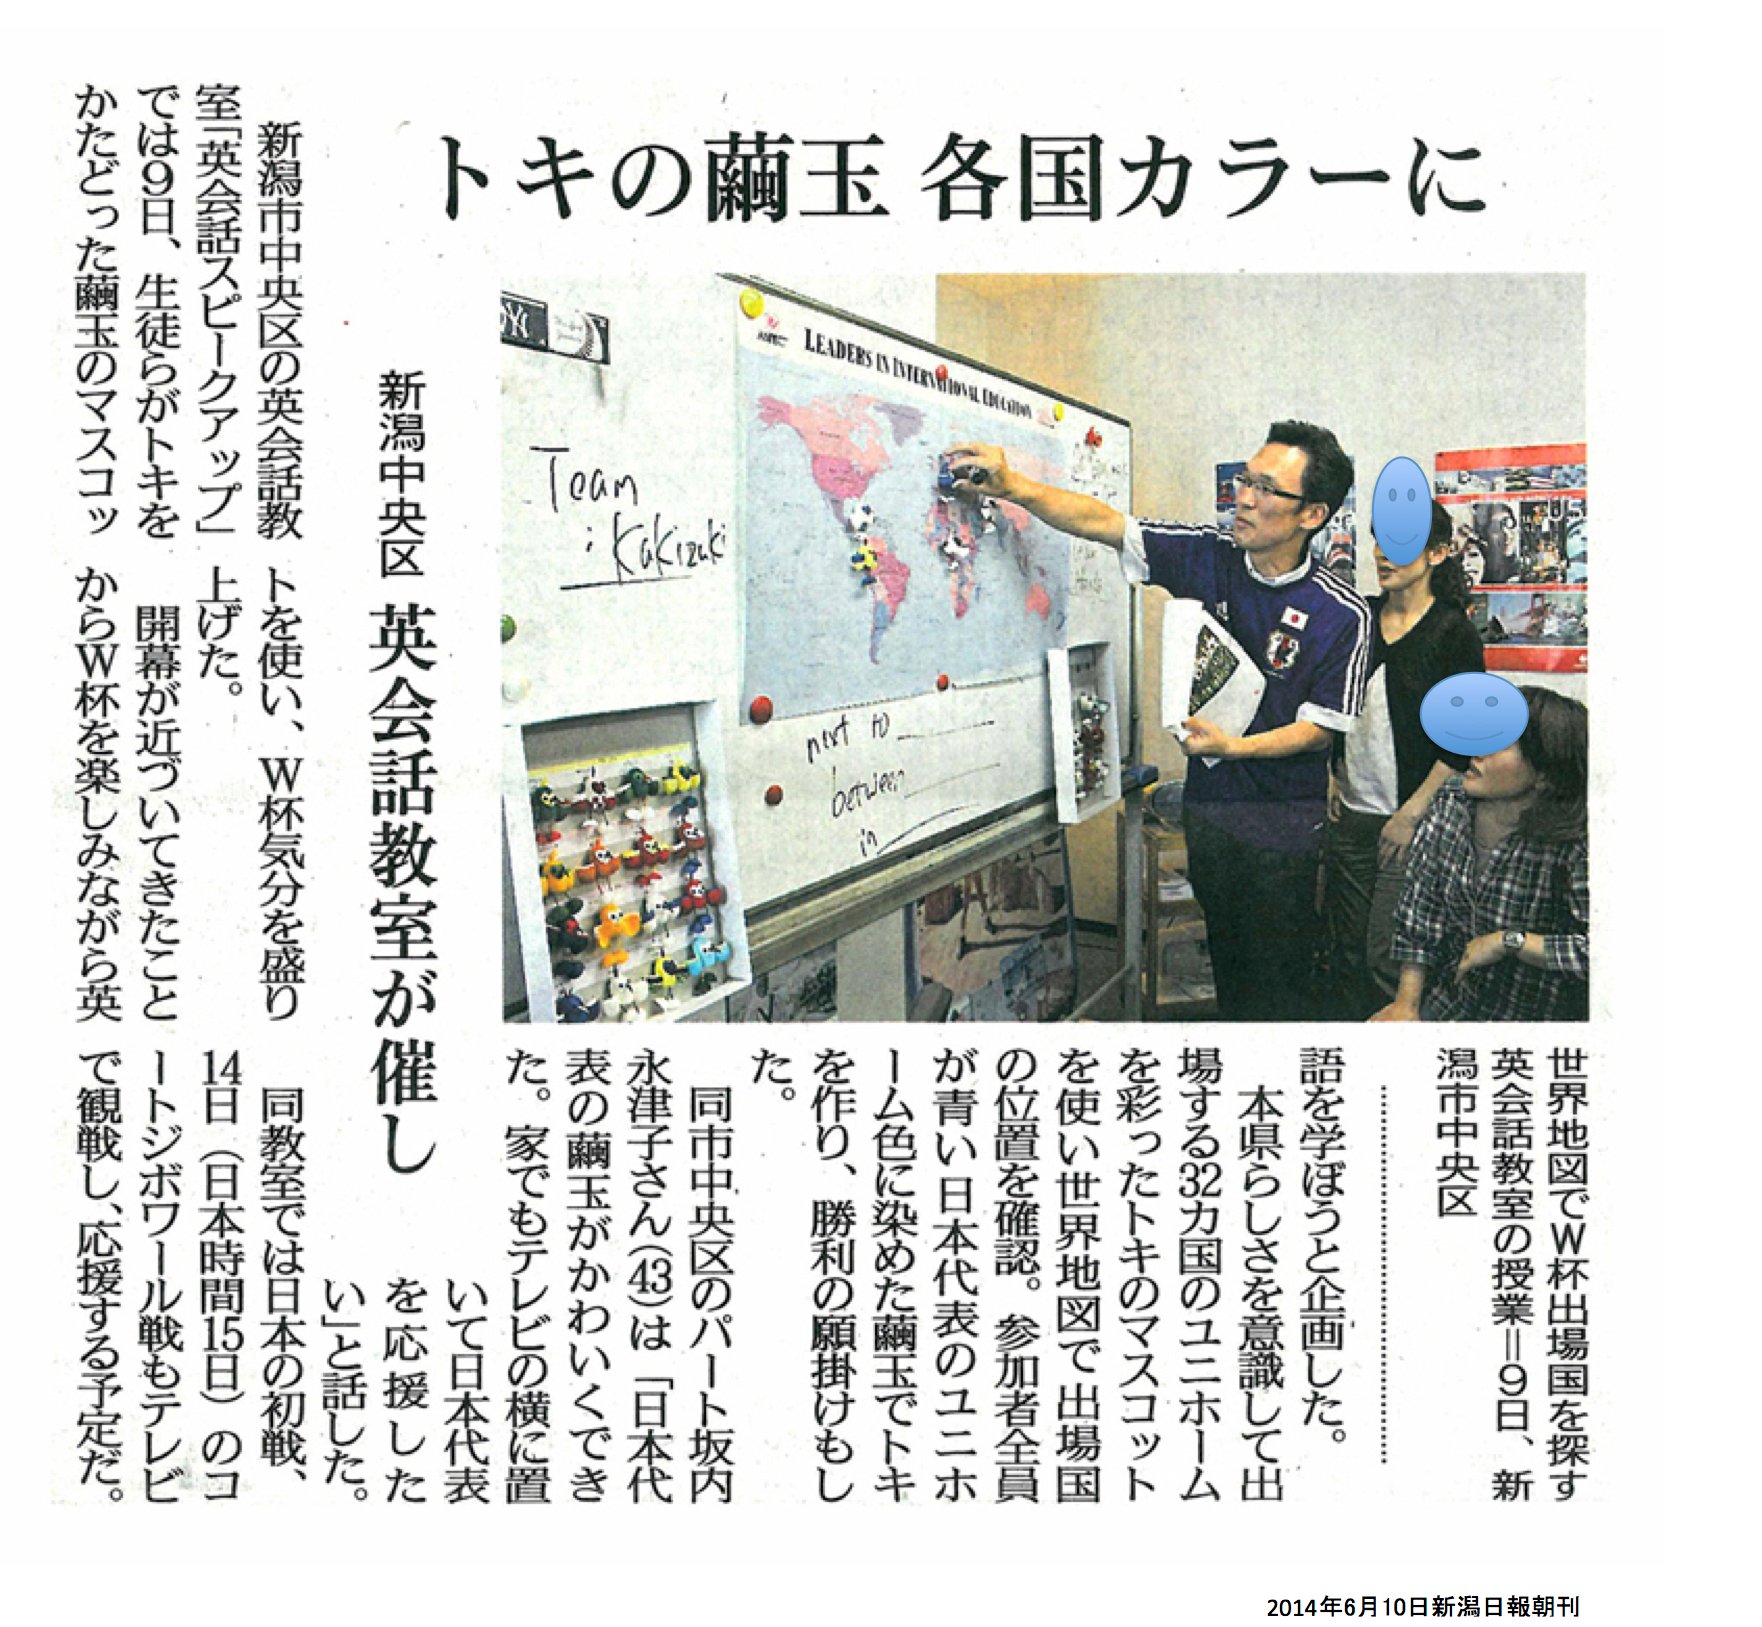 トキの繭玉 各国カラーに
新潟中央区 英会話教室が催し
新潟市中央区の英会話教
室「英会話スピークアップ」
では9日、生徒らがトキを
かたどった繭玉のマスコッ
トを使い、W杯気分を盛り
上げた。
開幕が近づいてきたこと
からW杯を楽しみながら英
語を学ぼうと企画した。
本県らしさを意識して出
場する32カ国のユニホーム
を彩ったトキのマスコット
を使い世界地図で出場国
の位置を確認。参加者全員
が青い日本代表のユニホ
ーム色に染めた繭玉でトキ
を作り、勝利の願掛けもし
た。
同市中央区のパート坂内
永津子さん(43)は「日本代
表の繭玉がかわいくでき
た。家でもテレビの横に置
いて日本代表
を応援した
い」と話した。
同教室では日本の初戦、
14日（日本時間15日）のコ
ートジボワール戦もテレビ
で観戦し、応援する予定だ。
LEADERS IN INTERNATIONAL EDUCATION
Team
: Kakizuki
next to
between
in
世界地図でW杯出場国を探す
英会話教室の授業＝9日、新
潟市中央区
2014年6月10日新潟日報朝刊